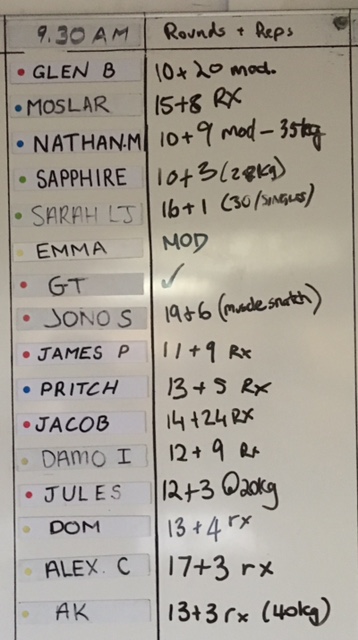 9.30 AM Rounds + Reps
GLEN B 10+20 mod.
MOSLAR 15+8 RX
NATHAN.M 10+9 mod - 35kg
SAPPHIRE 10+3 (28kg)
SARAH LJ 16+1 (30/SINGLES)
EMMA MOD
GT ✓
JONO S 19+6 (muscle snatch)
JAMES P 11+9 Rx
PRITCH 13+5 Rx
JACOB 14+24 RX
DAMO I 12+9 Rx
JULES 12+3 @20kg
DOM 13+4 rx
ALEX. C 17+3 rx
AK 13+3 rx (40kg)